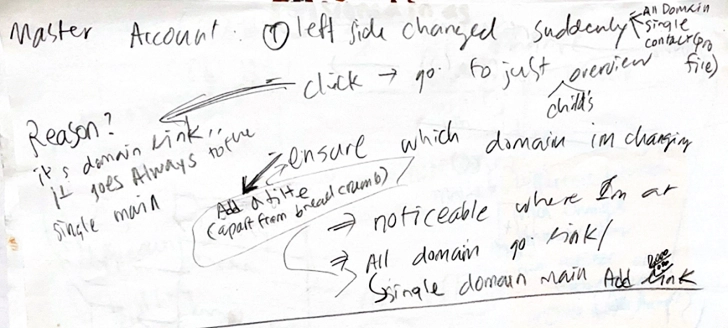 Master Account. ① left side changed suddenly
All Domain
single
contact (pro
file)
click → go. to just overview
child's
Reason?
it's domain link..
it goes Always to the
single main
- ensure which domain im changing
Add a title
(apart from bread crumb)
⇒ noticeable where I'm at
⇒ All domain go link/
↳ single domain main Add link